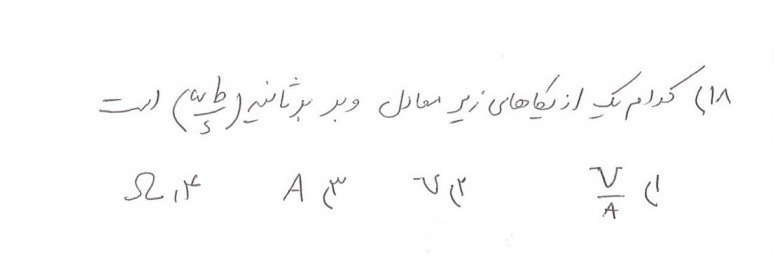 ۱۸) کدام یک از یکاهای زیر معادل وبر بر ثانیه (wb/s) است
۱) V/A ۲) V ۳) A ۴) Ω